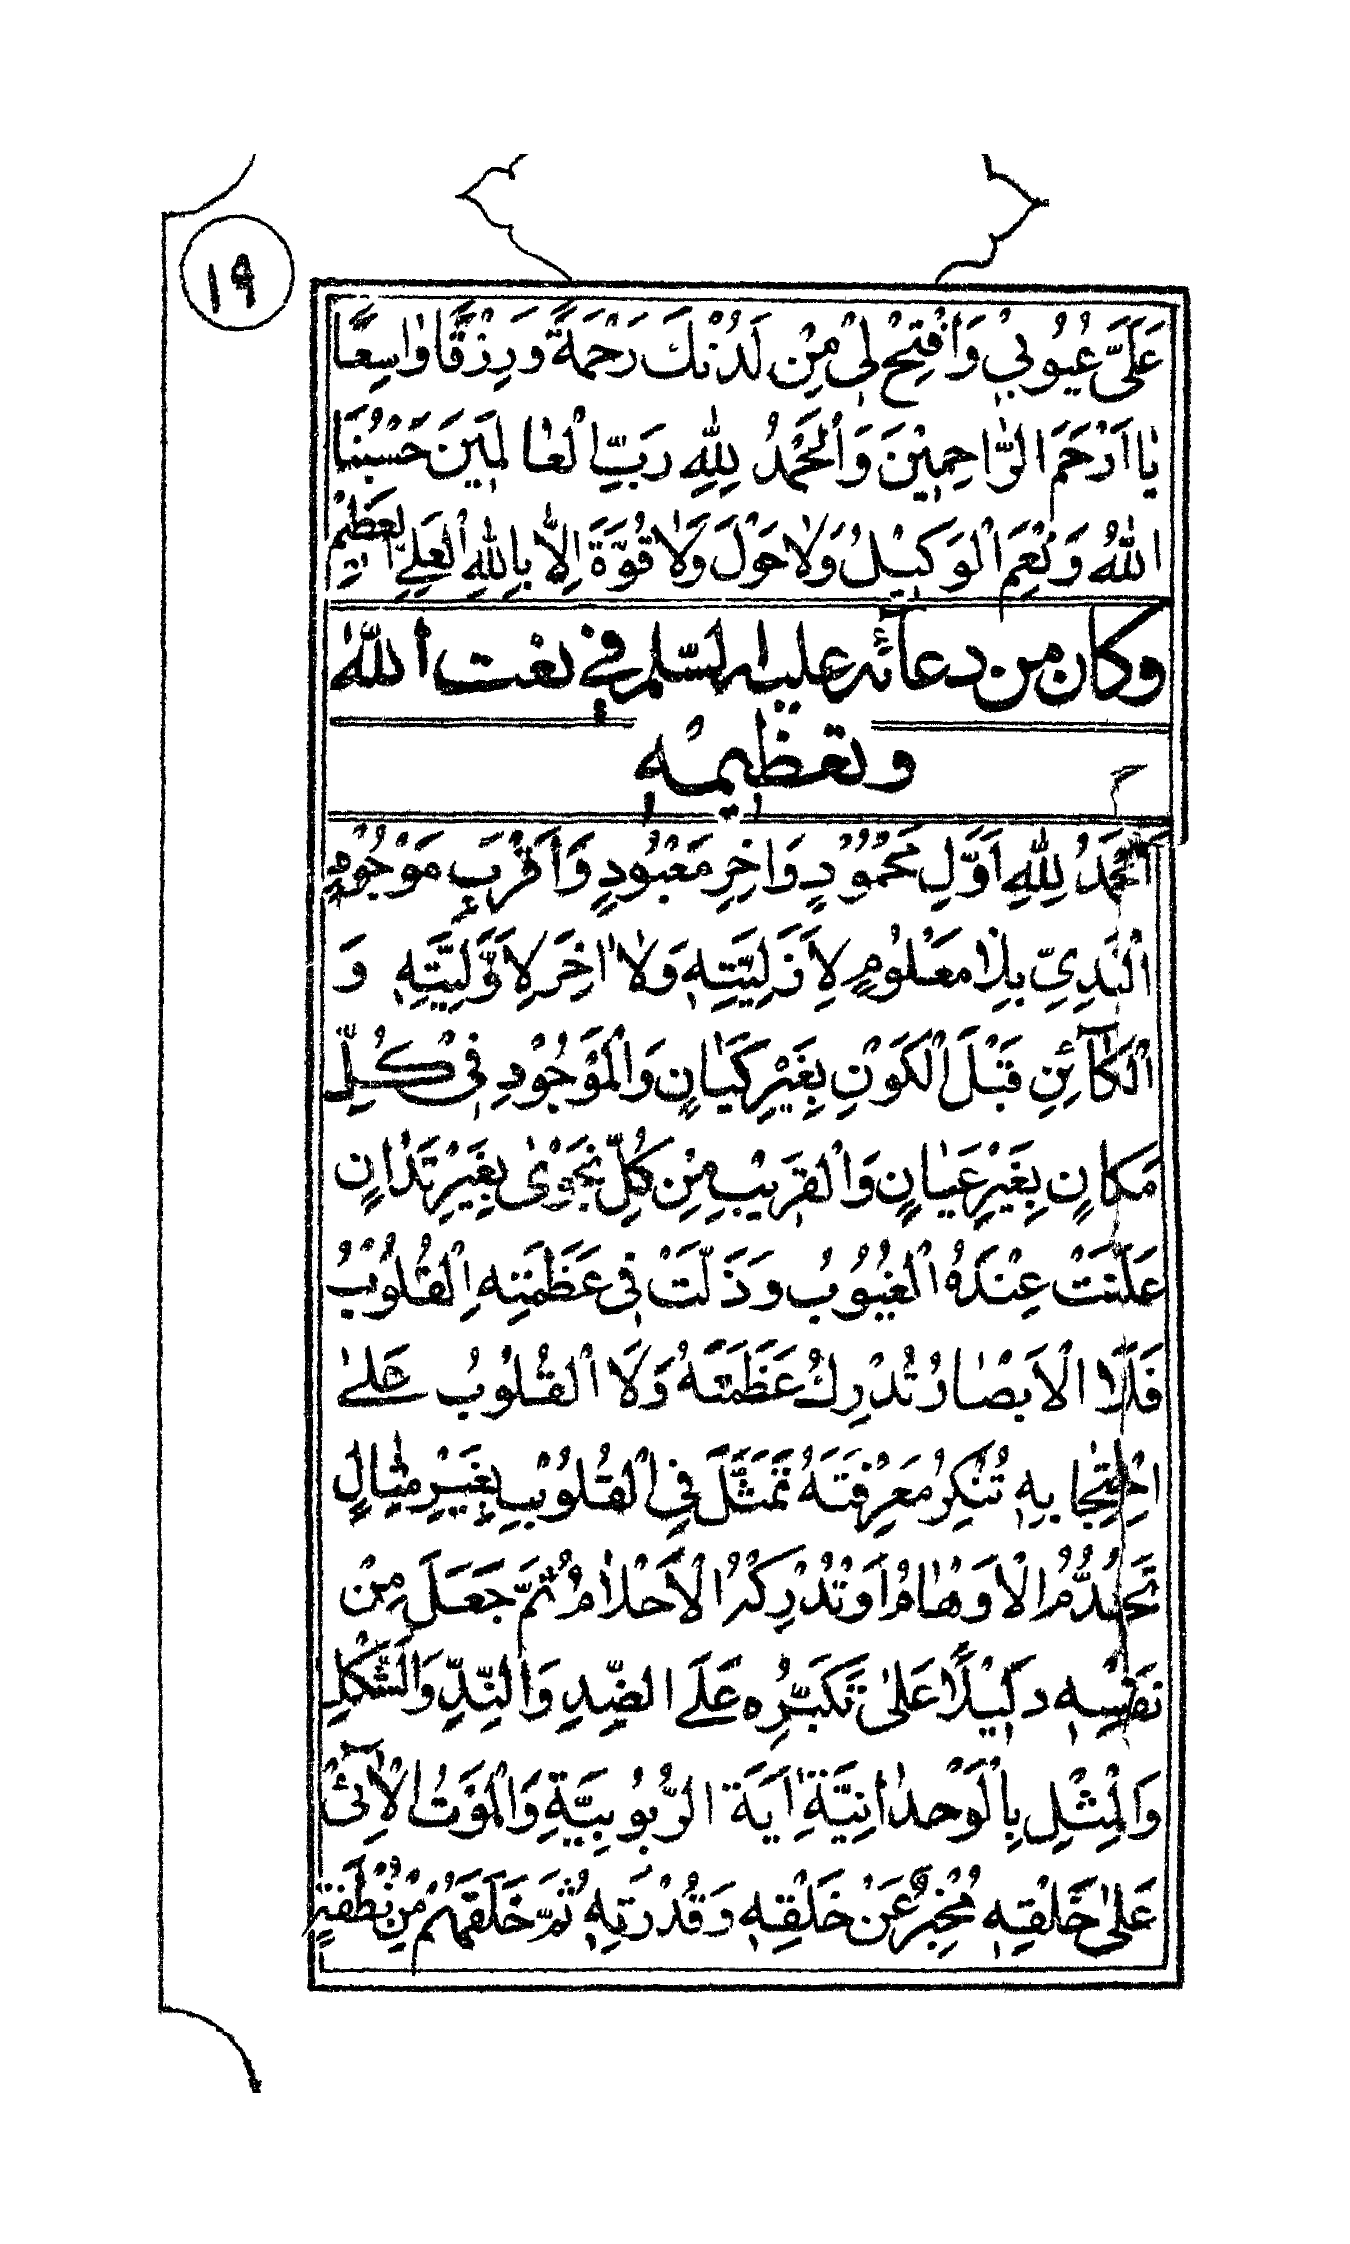 ١٩
عَلَىَّ عُيُوبِىْ وَافْتِحْ لِىْ مِنْ لَدُنْكَ رَحْمَةً وَرِزْقًا وٰاسِعًا
يٰا اَرْحَمَ الرّٰاحِمِيْنَ وَالْحَمْدُ لِلّٰهِ رَبِّ الْعٰالَمِيَنَ حَسْبُنَا
اللّٰهُ وَنِعْمَ الْوَكِيْلُ وَلٰا حَوْلَ وَلٰا قُوَّةَ اِلّٰا بِاللّٰهِ الْعَلِىِّ الْعَظِيْمِ
وكان من دعائه عليه السّلم في نعت الله
وتعظيمه
اَلْحَمْدُ لِلّٰهِ اَوَّلِ مَحْمُوْدٍ وَاٰخِرِ مَعْبُودٍ وَاَقْرَبِ مَوْجُوْدٍ
الْبَدِىِّ بِلٰا مَعْلُومٍ لِاَزَلِيَّتِهٖ وَلٰا اٰخِرَ لِاَوَّلِيَّتِهٖ وَ
الْكٰآئِنِ قَبْلَ الْكَوْنِ بِغَيْرِ كَيٰانٍ وَالْمَوْجُوْدِ فِىْ كُلِّ
مَكانٍ بِغَيْرِ عَيٰانٍ وَالْقَرِيْبِ مِنْ كُلِّ نَجْوٰى بِغَيْرِ تَدٰانٍ
عَلَنَتْ عِنْدَهُ الْغُيُوْبُ وَذَلَّتْ فِىْ عَظَمَتِهِ الْقُلُوْبُ
فَلَا الْاَبْصٰارُ تُدْرِكُ عَظَمَتَهُ وَلَا الْقُلُوْبُ عَلىٰ
احْتِجٰابِهٖ تُنْكِرُ مَعْرِفَتَهُ تَمَثَّلَ فِى الْقُلُوْبِ بِغَيْرِ مِثٰالٍ
تَحُدُّهُ الْاَوْهٰامُ اَوْ تُدْرِكُهُ الْاَحْلٰامُ ثُمَّ جَعَلَ مِنْ
نَفْسِهٖ دَلِيْلًا عَلىٰ تَكَبُّرِهِ عَلَى الضِّدِ وَالنِّدِّ وَالشَّكْلِ
وَالْمِثْلِ بِالْوَحْدٰانِيَّةُ اٰيَةُ الرُّبُوبِيَّةِ وَالْمَوْتُ الْاٰتِىْ
عَلىٰ خَلْقِهٖ مُخْبِرٌ عَنْ خَلْقِهٖ وَقُدْرَتِهٖ ثُمَّ خَلَقَهُمْ مِنْ نُطْفَةٍ